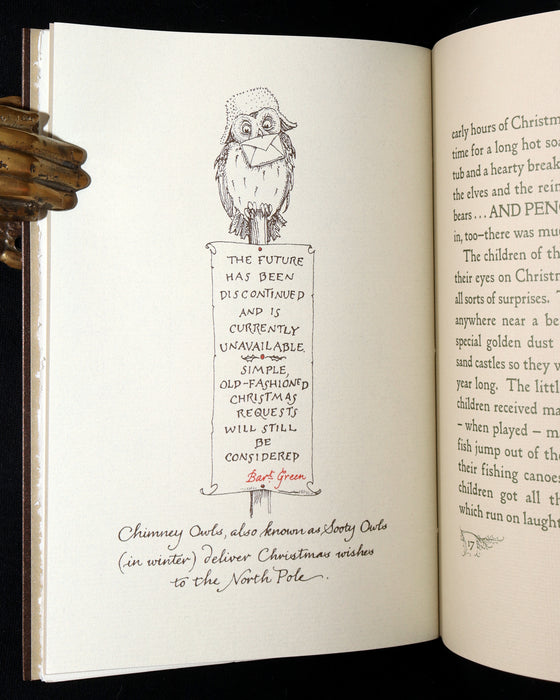 THE FUTURE
HAS BEEN
DISCONTINUED
AND IS
CURRENTLY
UNAVAILABLE.
SIMPLE,
OLD-FASHIONED
CHRISTMAS
REQUESTS
WILL STILL
BE
CONSIDERED
Bart. Green
Chimney Owls, also known as Sooty Owls
(in winter) deliver Christmas wishes
to the North Pole.
early hours of Christm
time for a long hot soa
tub and a hearty break
the elves and the rein
bears . . . AND PENG
in, too–there was muc
The children of th
their eyes on Christm
all sorts of surprises.
anywhere near a be
special golden dust
sand castles so they w
year long. The littl
children received ma
– when played – m
fish jump out of the
their fishing canoes
children got all th
which run on laught
17